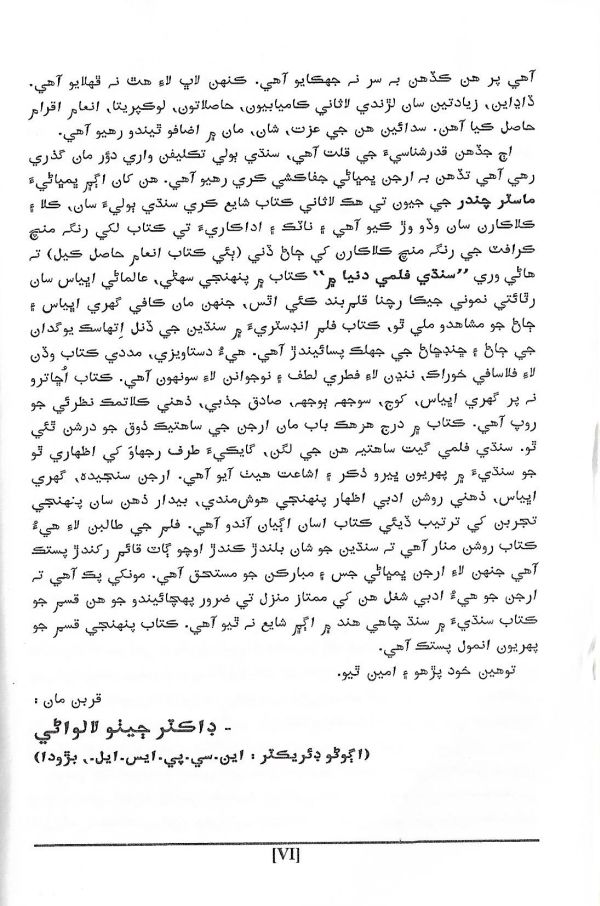 آهي پر هن ڪڏهن بہ سر نہ جهڪايو آهي. ڪنهن لاڀ لاءِ هٿ نہ ڦهلايو آهي.
ڏاڍاين، زيادتين سان لڙندي لاثاني ڪاميابيون، حاصلاتون، لوڪپريتا، انعام اڪرام
حاصل ڪيا آهن. سدائين هن جي عزت، شان، مان ۾ اضافو ٿيندو رهيو آهي.
اڄ جڏهن قدرشناسيءَ جي قلت آهي، سنڌي ٻولي تڪليفن واري دؤر مان گذري
رهي آهي تڏهن بہ ارجن ڀمڀاڻي جفاڪشي ڪري رهيو آهي. هن کان اڳ۾ ڀمڀاڻيءَ
ماسٽر چندر جي جيون تي هڪ لاثاني ڪتاب شايع ڪري سنڌي ٻوليءَ سان، ڪلا ۽
ڪلاڪارن سان وڏو وڙ ڪيو آهي ۽ ناٽڪ ۽ اداڪاريءَ تي ڪتاب لکي رنگہ منچ
ڪرافٽ جي رنگہ منچ ڪلاڪارن کي ڄاڻ ڏني (ٻئي ڪتاب انعام حاصل ڪيل) تہ
هاڻي وري ”سنڌي فلمي دنيا ۾“ ڪتاب ۾ پنهنجي سهڻي، عالماڻي اڀياس سان
رٿائتي نموني جيڪا رچنا قلمبند ڪئي اٿس، جنهن مان ڪافي گهري اڀياس ۽
ڄاڻ جو مشاهدو ملي ٿو، ڪتاب فلم انڊسٽريءَ ۾ سنڌين جي ڏنل اِتهاسڪ يوگدان
جي ڄاڻ ۽ ڇنڊڇاڻ جي جهلڪ پسائيندڙ آهي. هيءُ دستاويزي، مددي ڪتاب وڏن
لاءِ فلاسافي خوراڪ، ننڍن لاءِ فطري لطف ۽ نوجوانن لاءِ سونهون آهي. ڪتاب اُڇاترو
نہ پر گهري اڀياس، کوج، سوجهہ ٻوجهہ، صادق جذبي، ذهني ڪلاتمڪ نظرئي جو
روپ آهي. ڪتاب ۾ درج هرهڪ باب مان ارجن جي ساهتيڪ ذوق جو درشن ٿئي
ٿو. سنڌي فلمي گيت ساهتيہ هن جي لگن، گايڪيءَ طرف رجهاوَ کي اظهاري ٿو
جو سنڌيءَ ۾ پهريون ڀيرو ذڪر ۽ اشاعت هيٺ آيو آهي. ارجن سنجيده، گهري
اڀياس، ذهني روشن ادبي اظهار پنهنجي هوشمندي، بيدار ذهن سان پنهنجي
تجربن کي ترتيب ڏيئي ڪتاب اسان اڳيان آندو آهي. فلم جي طالبن لاءِ هيءُ
ڪتاب روشن منار آهي تہ سنڌين جو شان بلند ڪندڙ اوچو ڳاٽ قائم رکندڙ پستڪ
آهي جنهن لاءِ ارجن ڀمڀاڻي جس ۽ مبارڪن جو مستحق آهي. مونکي پڪ آهي تہ
ارجن جو هيءُ ادبي شغل هن کي ممتاز منزل تي ضرور پهچائيندو جو هن قسم جو
ڪتاب سنڌيءَ ۾ سنڌ چاهي هند ۾ اڳ۾ شايع نہ ٿيو آهي. ڪتاب پنهنجي قسم جو
پهريون انمول پستڪ آهي.
توهين خود پڙهو ۽ امين ٿيو.
قربن مان :
- ڊاڪٽر جيٺو لالواڻي
(اڳوڻو ڊئريڪٽر : اين.سي.پي.ايس.ايل.، بڙودا)
[VI]